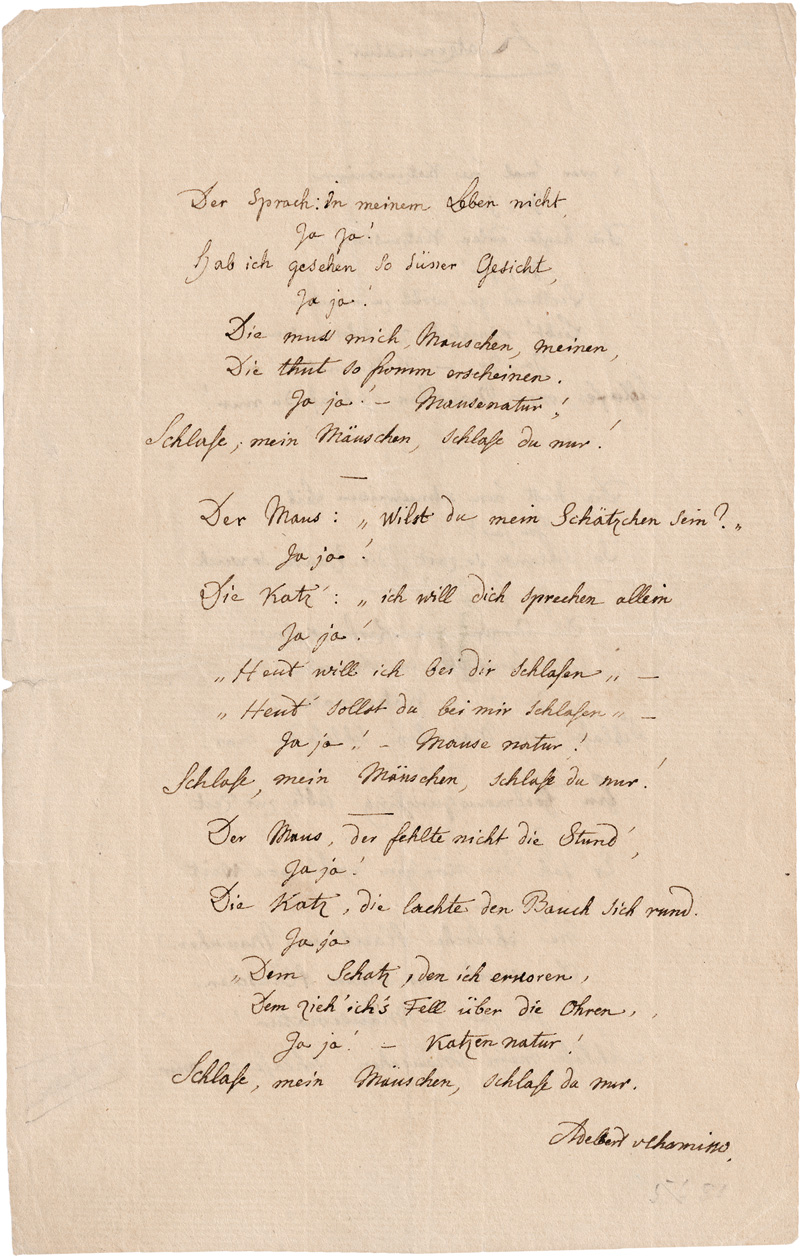 Der Sprach: In meinem Leben nicht,
Ja ja!
Hab ich gesehen so süsser Gesicht,
Ja ja!
Die muss mich, Mauschen, meinen,
Die thut so fromm erscheinen.
Ja ja! – Mausenatur!
Schlafe, mein Mäuschen, schlafe du nur!
Der Maus: „Wilst du mein Schätzchen sein?„
Ja ja!
Die Katz': „ich will dich sprechen allein
Ja ja!
„Heut will ich bei dir schlafen„ –
„Heut' sollst du bei mir schlafen„ –
Ja ja! – Mause natur!
Schlafe, mein Mäuschen, schlafe du nur!
Der Maus, der fehlte nicht die Stund',
Ja ja!
Die Katz, die lachte den Bauch sich rund.
Ja ja
„Dem Schatz, den ich erkoren,
Dem zieh' ich's Fell über die Ohren,
Ja ja! – Katzen natur!
Schlafe, mein Mäuschen, schlafe du nur.
Adelbert v Chamisso.